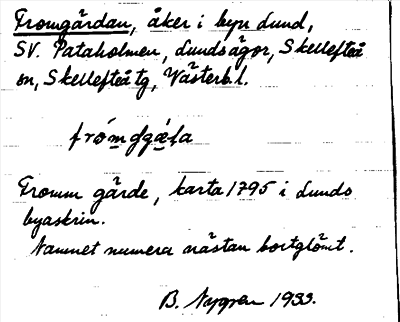 Fromgärdan, åker i byn Lund,
SV. Pataholmen, Lunds ägor, Skellefteå
sn, Skellefteå tg, Västerb.l.
Fromm gärde, karta 1795 i Lunds
byaskrin.
Namnet numera nästan bortglömt.
B. Nygren 1933.